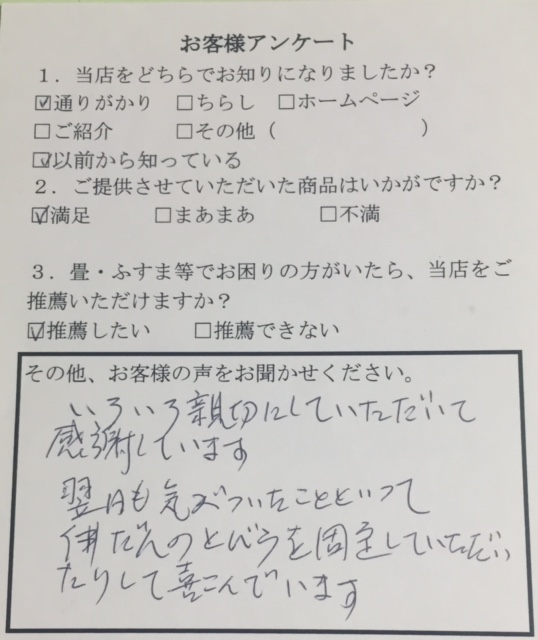 お客様アンケート
1.当店をどちらでお知りになりましたか?
☑通りがかり □ちらし □ホームページ
□ご紹介 □その他( )
☑以前から知っている
2.ご提供させていただいた商品はいかがですか?
☑満足 □まあまあ □不満
3.畳・ふすま等でお困りの方がいたら、当店をご
推薦いただけますか?
☑推薦したい □推薦できない
その他、お客様の声をお聞かせください。
いろいろ親切にしていただいて
感謝しています
翌日も気づいたことといって
だんのとびらを固定していただい
たりして喜こんでいます